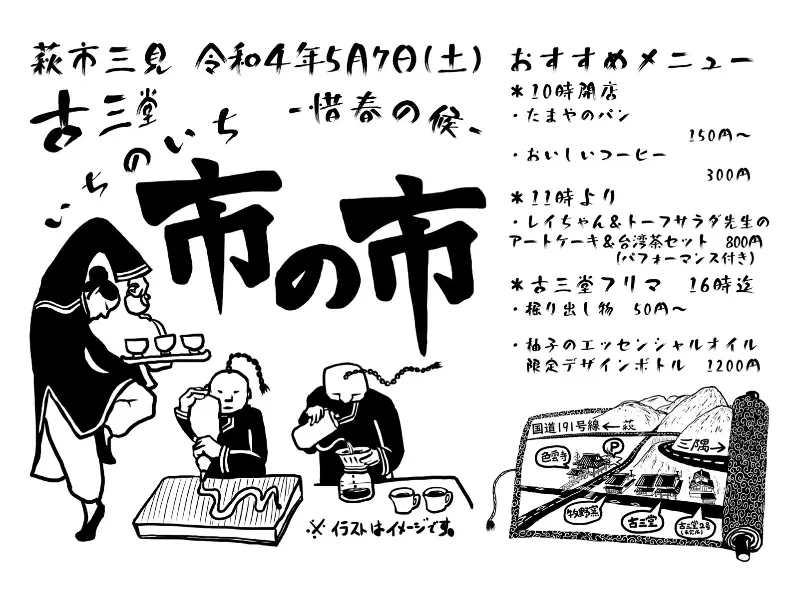 萩市三見 令和4年5月7日(土)
古三堂 -惜春の候-
いちのいち
市の市
おすすめメニュー
*10時開店
・たまやのパン
150円〜
・おいしいコーヒー
300円
*11時より
・レイちゃん&トーフサラダ先生の
アートケーキ&台湾茶セット 800円
(パフォーマンス付き)
*古三堂フリマ 16時迄
・掘り出し物 50円〜
・柚子のエッセンシャルオイル
限定デザインボトル 1200円
※イラストはイメージです。
国道191号線←萩
三隅→
P
色雲寺
牧野窯
古三堂
古三堂2号